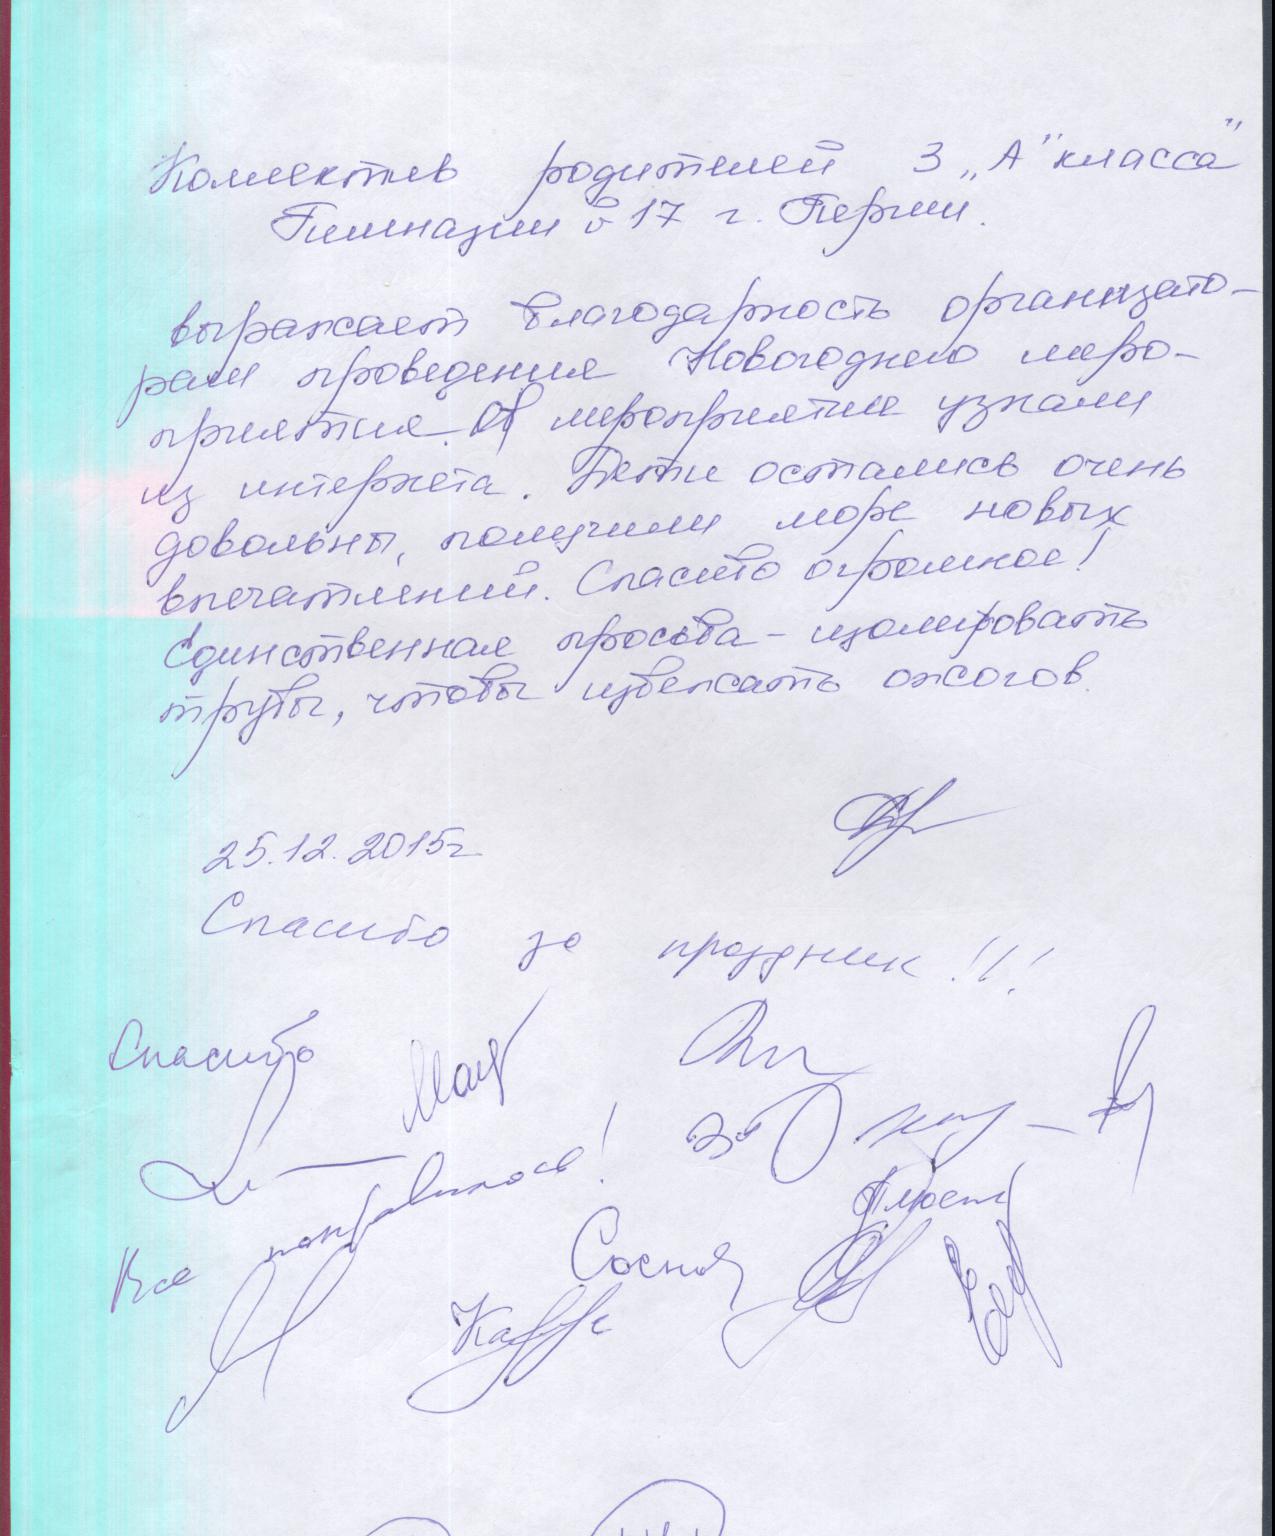 Коллектив родителей 3 „А" класса"
Гимназии 17 г. Перми.
выражает благодарность организато-
рам проведения Новогоднего меро-
приятия. О мероприятии узнали
из интернета. Дети остались очень
довольны, получили море новых
впечатлений. Спасибо огромное!
Единственная просьба – изолировать
трубы, чтобы избежать ожогов.
25.12.2015г
Спасибо за праздник!!!
Спасибо
Все понравилось!